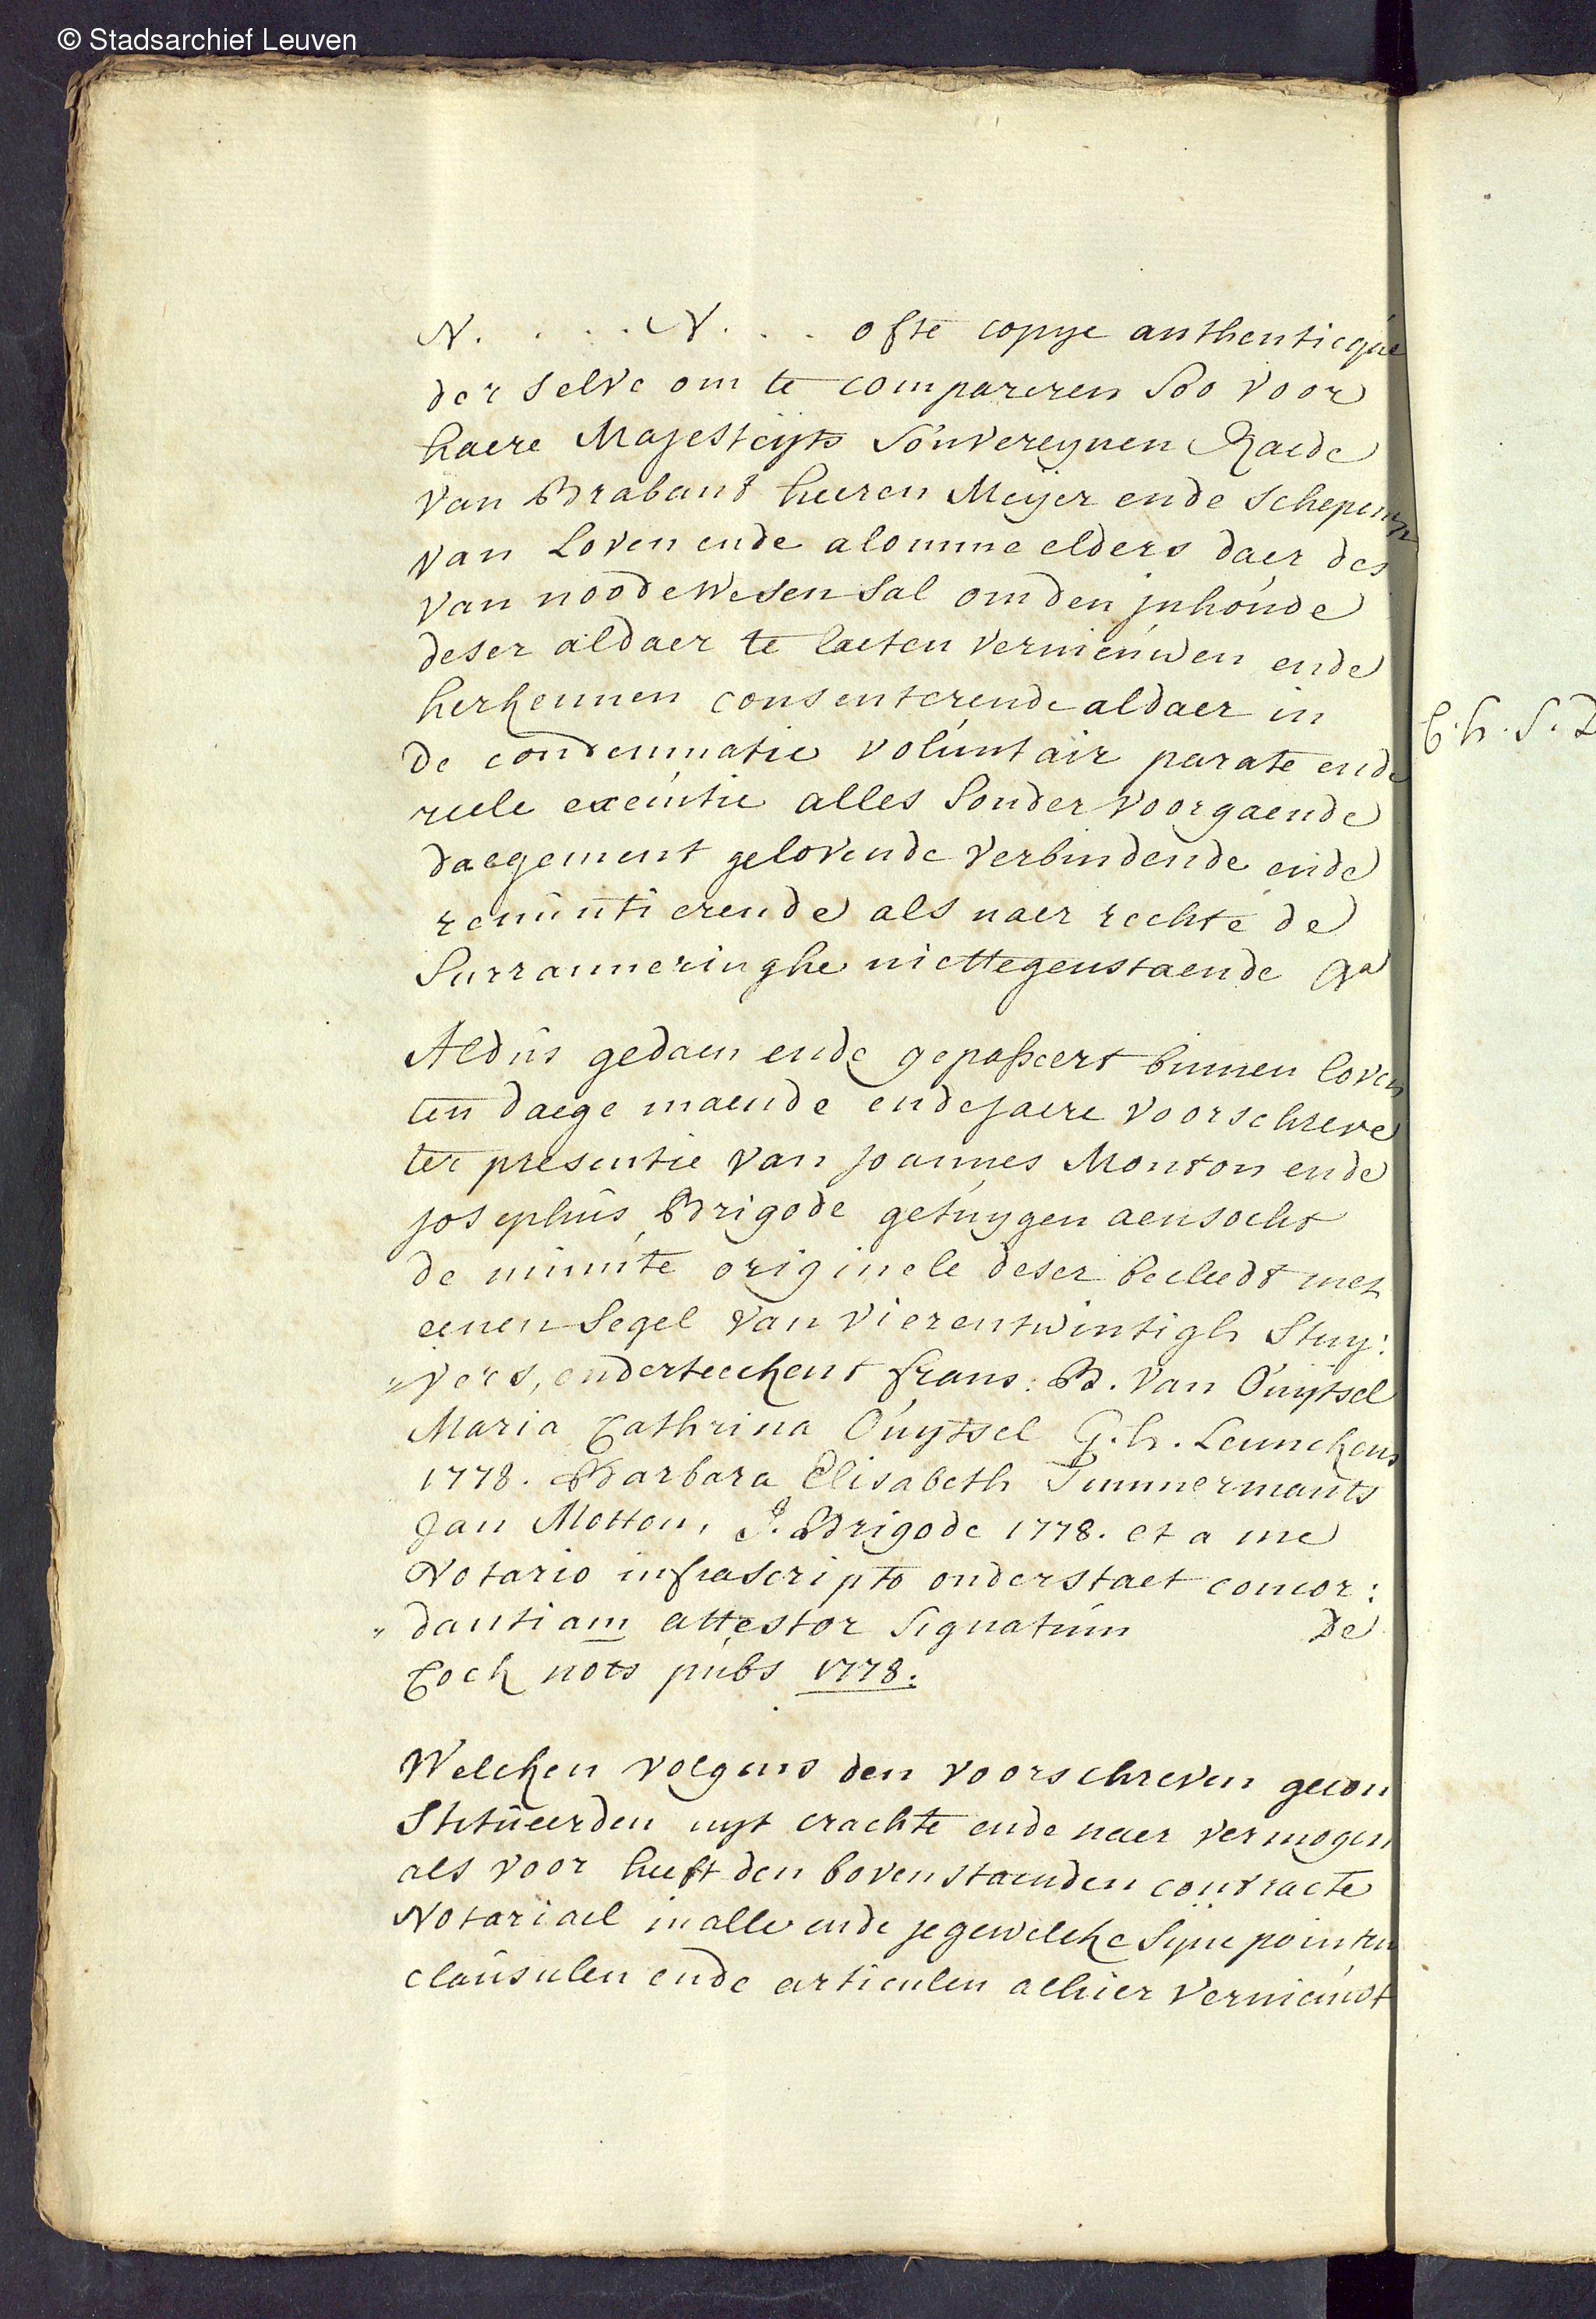 © Stadsarchief Leuven
N. . . . . N. . . . ofte copye authenticque
der selve om te compareren soo voor
haere Majesteyts Souvereynen Raede
van Brabant heeren Meyer ende schepenen
van Loven ende alomme elders daer des
van noode wesen sal om den inhoude
deser aldaer te laeten vernieuwen ende
herkennen consenterende aldaer in
de condemnatie voluntair parate ende
reele executie alles sonder voorgaende
daegement gelovende verbindende ende
renuntierende als naer rechte de
surranneringhe niettegenstaende
Aldus gedaen ende gepasseert binnen loven
ten daege maende ende jaere voorschreve
ter presentie van joannes Monton ende
josephus Brigode getuygen aensocht
de minute originele deser becleedt met
eenen segel van vierentwintigh stuy:
"vers, onderteeckent frans: B. van Ouytsel
Maria Cathrina Ouytsel G. h. Leunckens
1778. Barbara Elisabeth Timmermants
Jan Motton, J. Brigode 1778. et a me
Notario infrascripto onderstaet concor:
"dantiam attestor signatum de
Cock nots pubs 1778.
Welcken volgens den voorschreven gecon
stitueerden uyt crachte ende naer vermogen
als voor heeft den bovenstaenden contracte
Notariael in alle ende jegewelcke syne pointen
clausulen ende articulen alhier vernieuwt
C. h. S. D